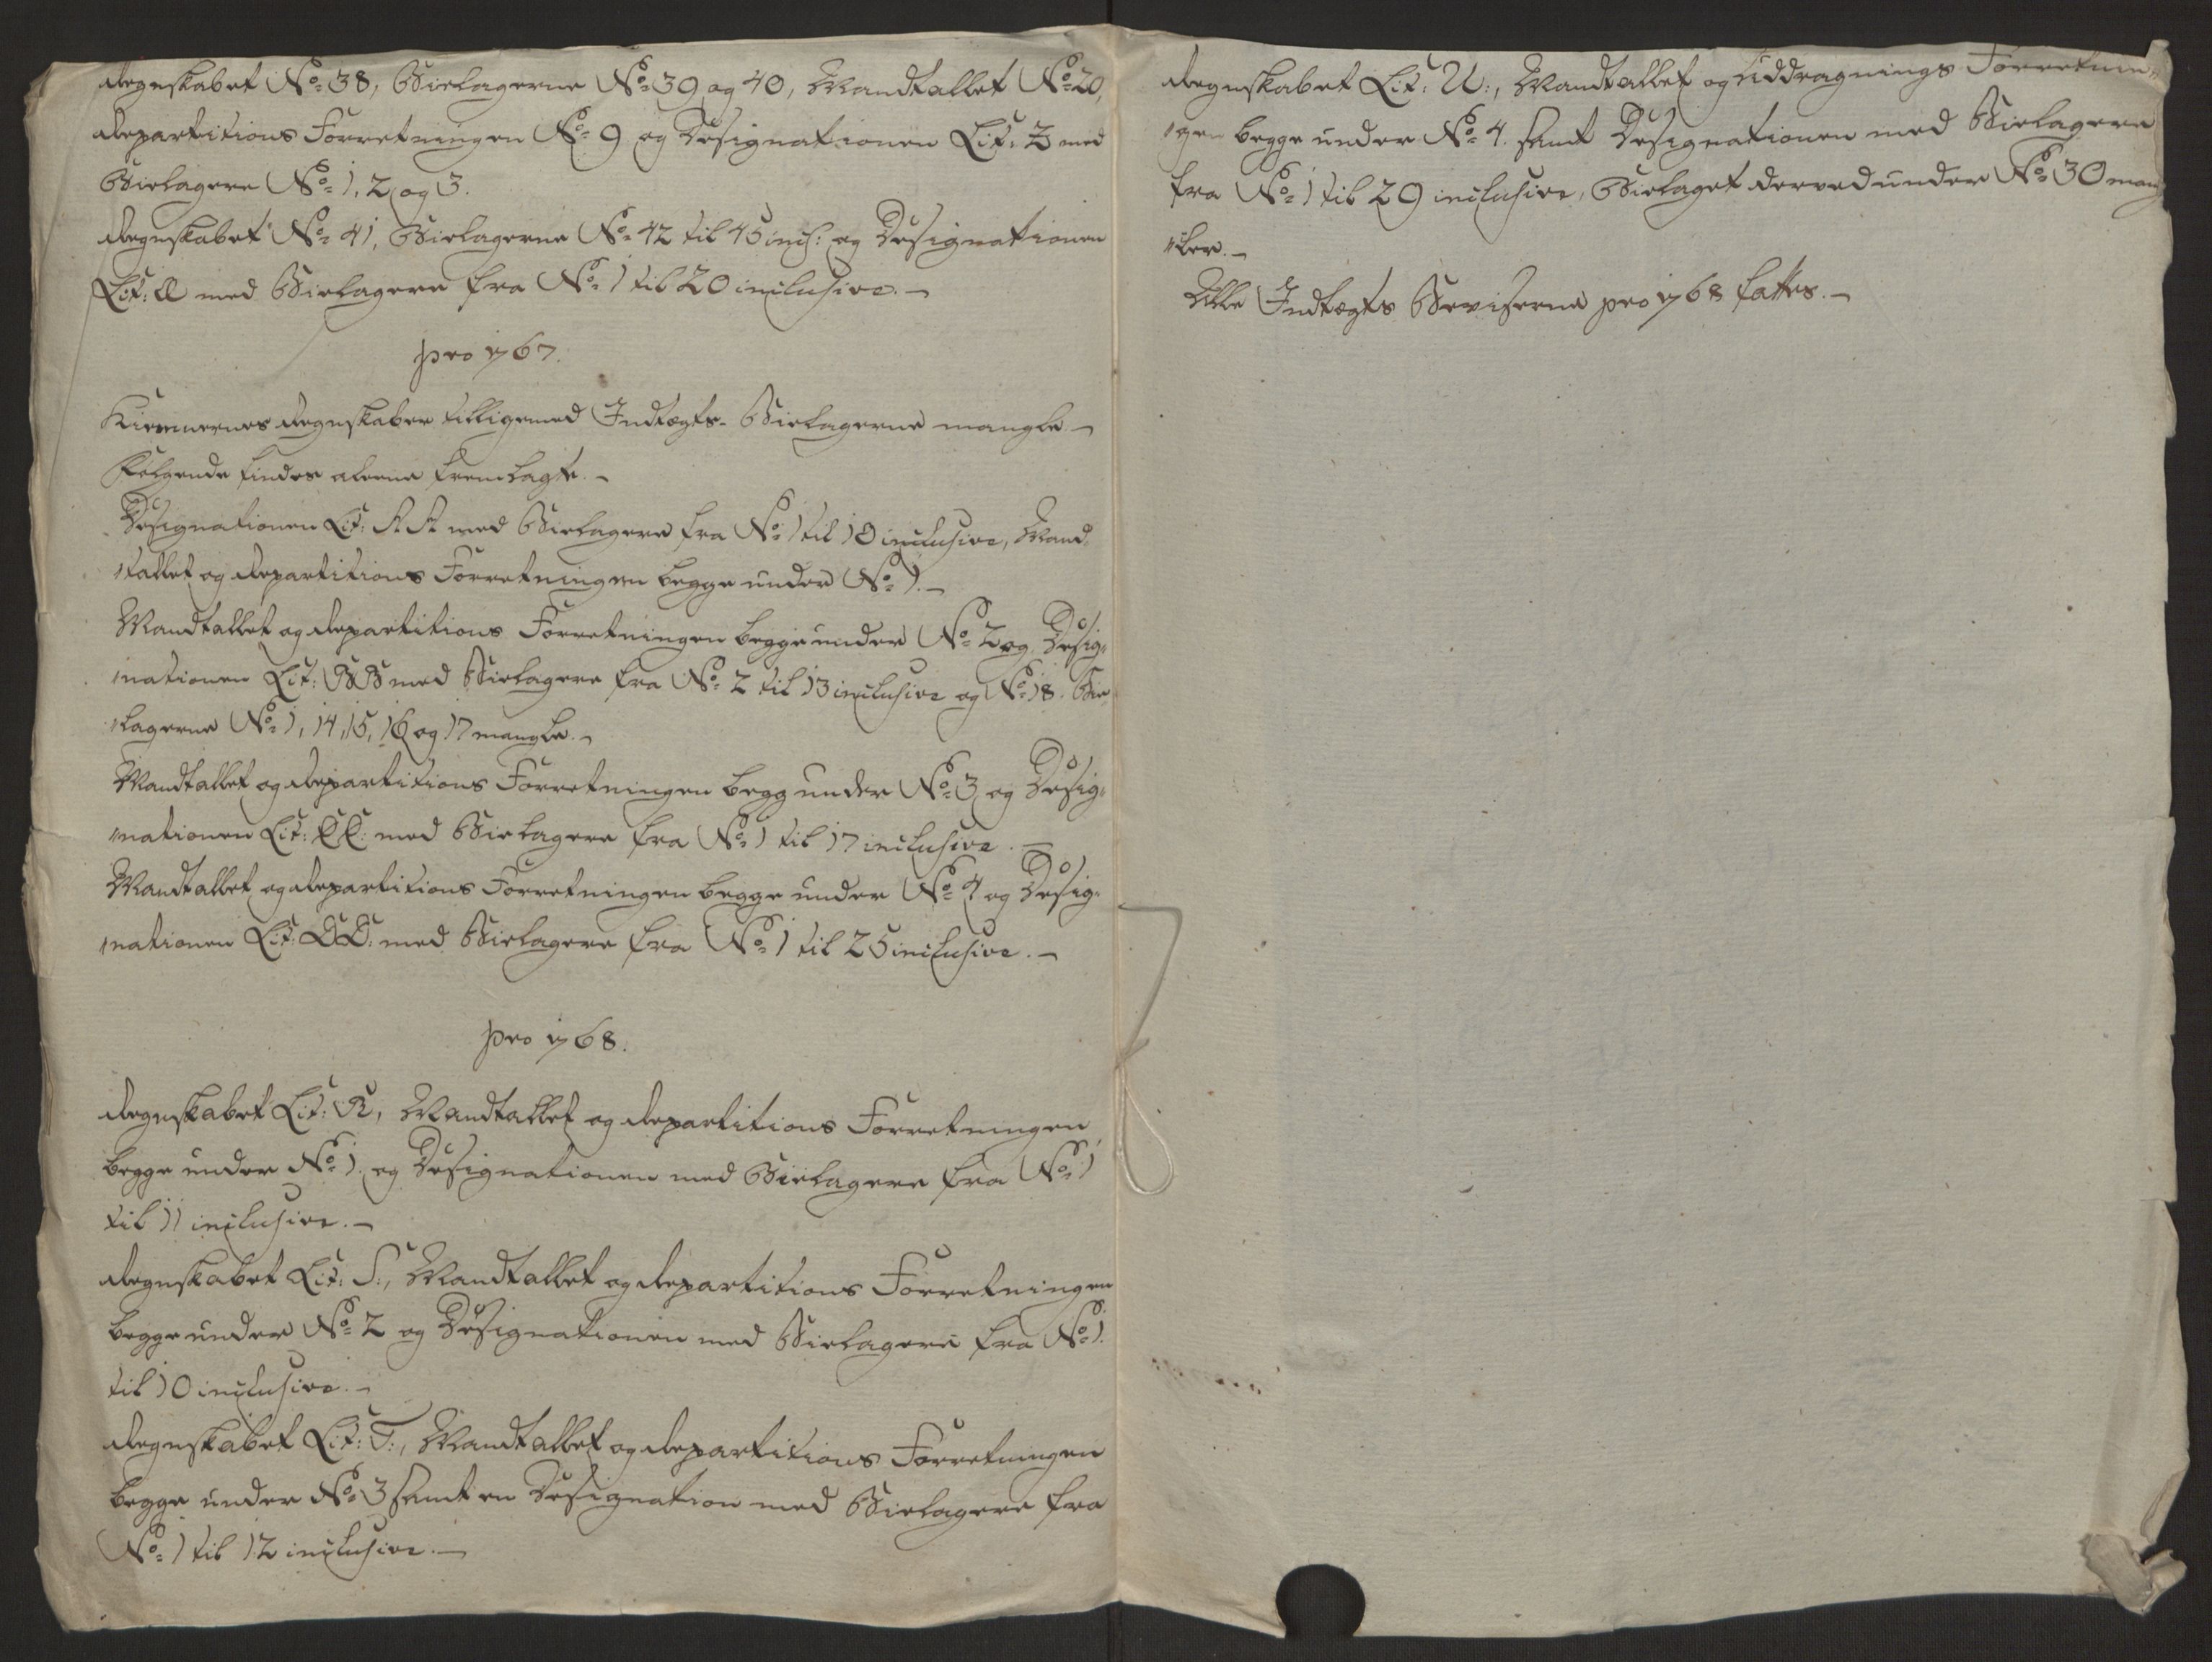 Regnskabet No: 38, Bielagerne No: 39 og 40, Mandtallet No: 20,
Repartitions Forretningen No: 9 og Designationen Lit: Z med
Bielagere No: 1, 2 og 3.
Regnskabet No: 41, Bielagerne No: 42 til 45 incl: og Designationen
Lit: Æ med Bielagere fra No: 1 til 20 inclusive. –
pro 1767.
Kiemnernes Regnskaber tilligemed Indtægts- Bielagerne mangle –
Følgende findes aleene fremlagte. –
Designationen Lit: AA med Bielagere fra No: 1 til 10 inclusive, Mand-
tallet og Repartitions Forretningen begge under No: 1. –
Mandtallet og Repartitions Forretningen begge under No: 2 og Desig-
nationen Lit: BB med Bielagere fra No: 2 til 13 inclusive og No: 18. Bie-
lagerne No: 1, 14, 15, 16 og 17 mangle. –
Mandtallet og Repartitions Forretningen begg under No: 3 og Desig-
nationen Lit: CC: med Bielagere fra No: 1 til 17 inclusive. –
Mandtallet og Repartitions Forretningen begge under No: 4 og Desig-
nationen Lit: DD: med Bielagere fra No: 1 til 25 inclusive. –
pro 1768.
Regnskabet Lit: R, Mandtallet og Repartitions Forretningen
begge under No: 1. og Designationen med Bielagere fra No: 1
til 11 inclusive. –
Regnskabet Lit: S:, Mandtallet og Repartitions Forretningen
begge under No: 2 og Designationen med Bielagere fra No: 1.
til 10 inclusive. –
Regnskabet Lit: T:, Mandtallet og Repartitions Forretningen
begge under No: 3 samt en Designation med Bielagere fra
No: 1 til 12 inclusive. –
Regnskabet Lit: U:, Mandtallet og Uddragnings Forretnin-
gen begge under No: 4. samt Designationen med Bielagere
fra No: 1 til 29 inclusive, Bielaget derved under No: 30 mang-
ler. –
Alle Indtægts Beviserne pro 1768 fattes. –